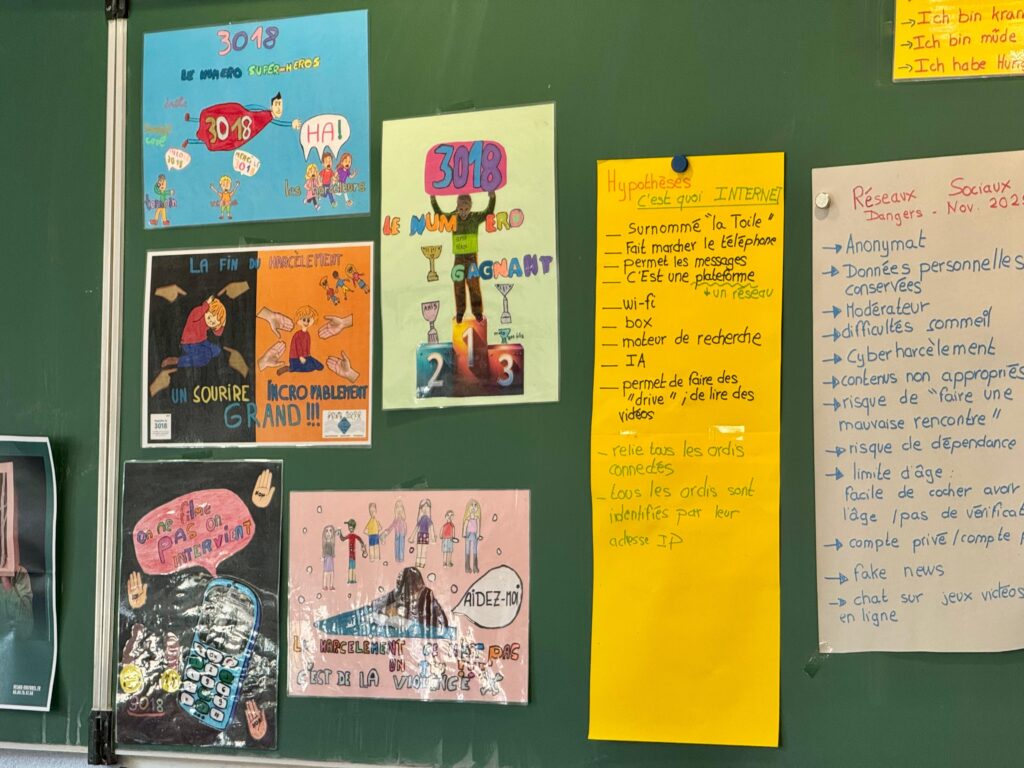 3018
LE NUMERO SUPER-HEROS
3018
HA!
les harceleurs
3018
LE NUMERO
GAGNANT
1
2
3
LA FIN DU HARCÈLEMENT
UN SOURIRE
INCROYABLEMENT
GRAND!!!
3018
On ne filme
PAS on
intervient
3018
AIDEZ-MOI
LE HARCELEMENT
PAS
UN
C'EST DE LA VIOLENCE
Hypothèses
C'est quoi INTERNET
_ Surnommé "la Toile"
_ Fait marcher le téléphone
_ permet les messages
_ C'Est une plateforme
↓ un réseau
_ wi-fi
_ box
_ moteur de recherche
_ IA
_ permet de faire des
"drive" ; de lire des
vidéos
_ relie tous les ordis
connectés
_ tous les ordis sont
identifiés par leur
adresse IP
→ Ich bin
→ Ich bin müde
→ Ich habe
Réseaux Sociaux
Dangers - Nov.
→ Anonymat
→ Données personnelles
conservées
→ Modérateur
→ difficultés sommeil
→ Cyberharcèlement
→ contenus non appropriés
→ risque de "faire une
mauvaise rencontre"
→ risque de dépendance
→ limite d'âge :
facile de cocher avoir
l'âge / pas de
→ compte privé / compte
→ fake news
→ chat sur jeux vidéos
en ligne